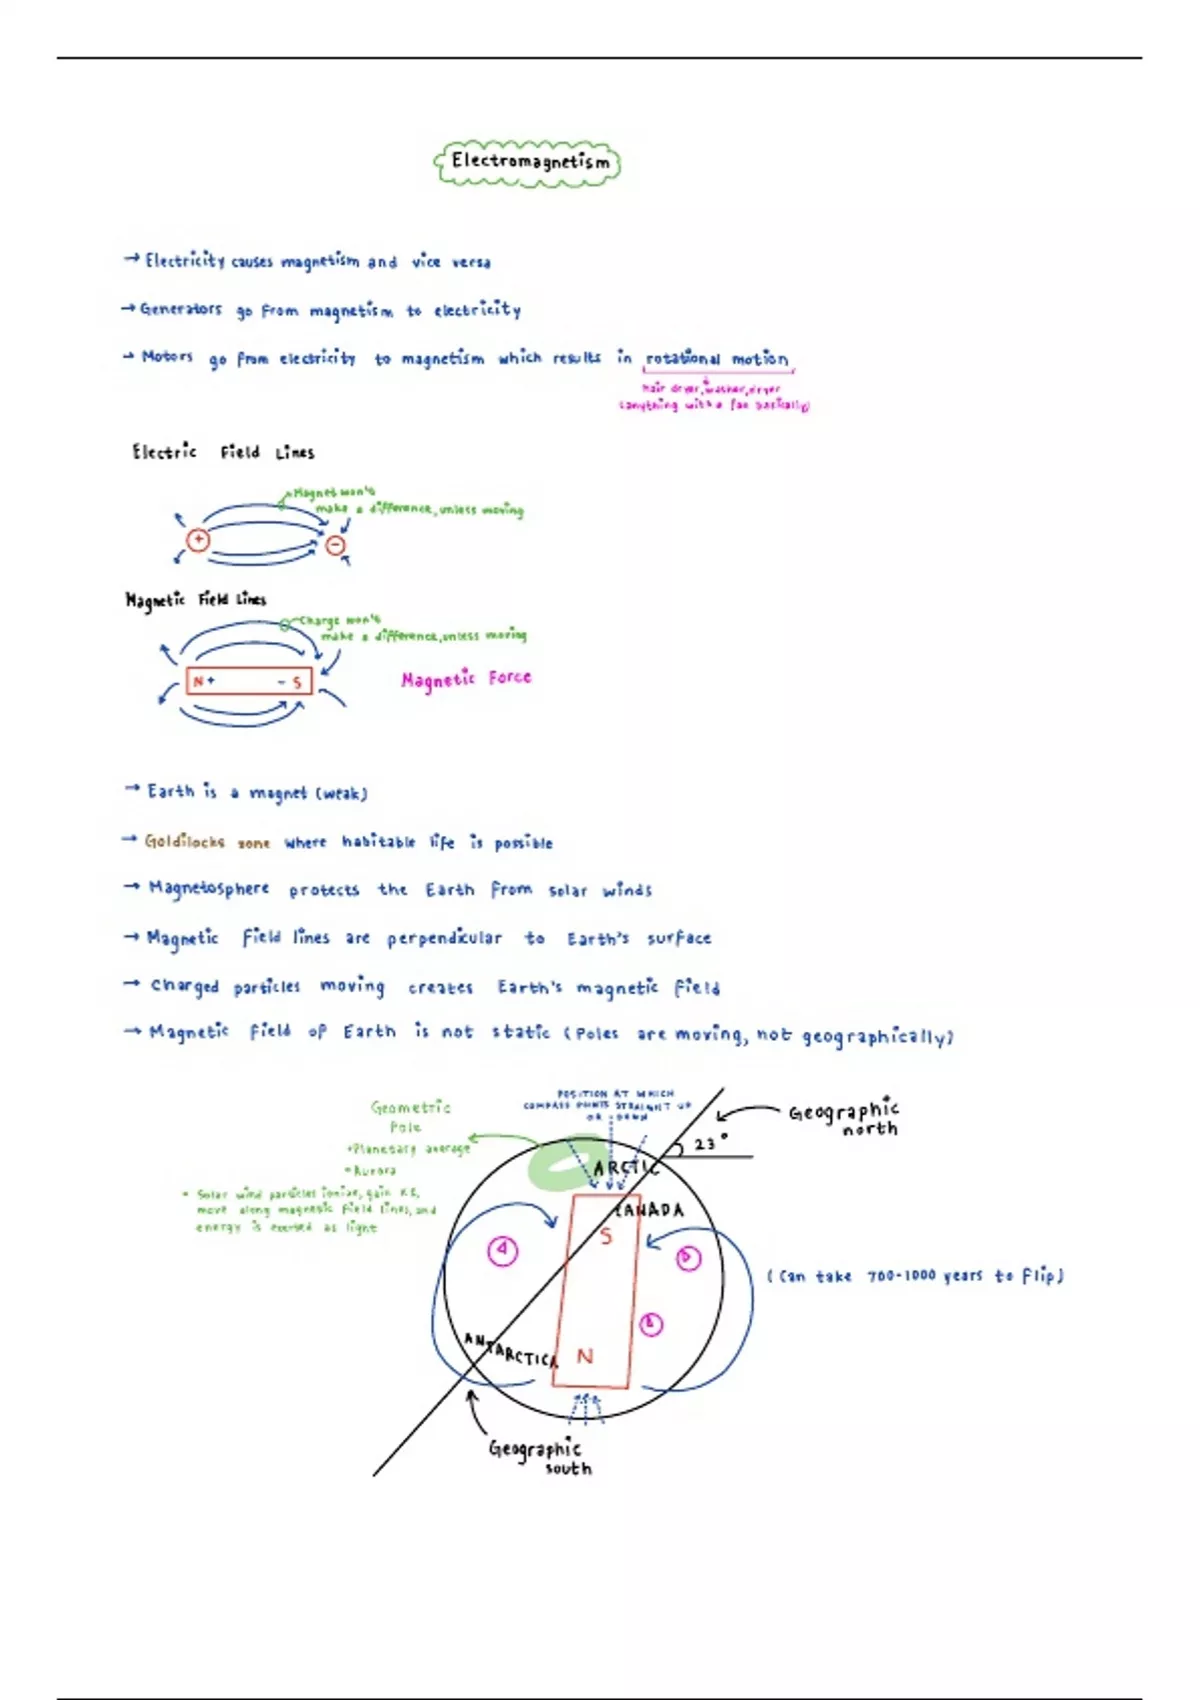 Electromagnetism
→ Electricity causes magnetism and vice versa
→ Generators go from magnetism to electricity
→ Motors go from electricity to magnetism which results in rotational motion
hair dryer, washer, dryer
(anything with a fan basically)
Electric Field Lines
Magnet won't
make a difference, unless moving
+
-
Magnetic Field Lines
Charge won't
make a difference, unless moving
N + - S
Magnetic Force
→ Earth is a magnet (weak)
→ Goldilocks zone where habitable life is possible
→ Magnetosphere protects the Earth from solar winds
→ Magnetic field lines are perpendicular to Earth's surface
→ Charged particles moving creates Earth's magnetic field
→ Magnetic field of Earth is not static (Poles are moving, not geographically)
POSITION AT WHICH
COMPASS POINTS STRAIGHT UP
OR DOWN
Geometric
Pole
•Planetary average
•Aurora
• Solar wind particles ionize, gain KE,
move along magnetic field lines, and
energy is exerted as light
Geographic
north
23°
ARCTIC
CANADA
S
(Can take 700-1000 years to flip)
ANTARCTICA
N
Geographic
south